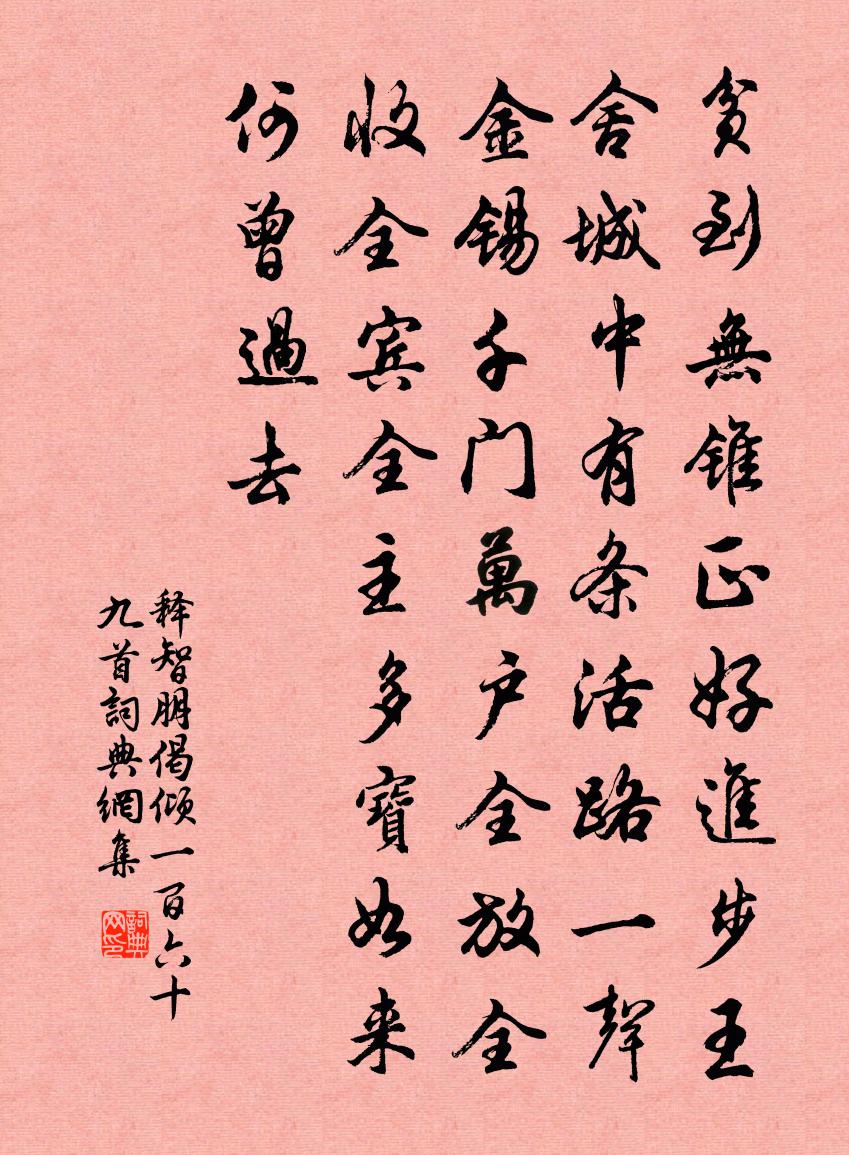 貧到無錐正好進步王
舍城中有条活路一聲
金锡千门萬户全放全
收全宾全主多寶如来
何曾過去
释智朋偈倾一百六十
九首詞典網集
詞典网印